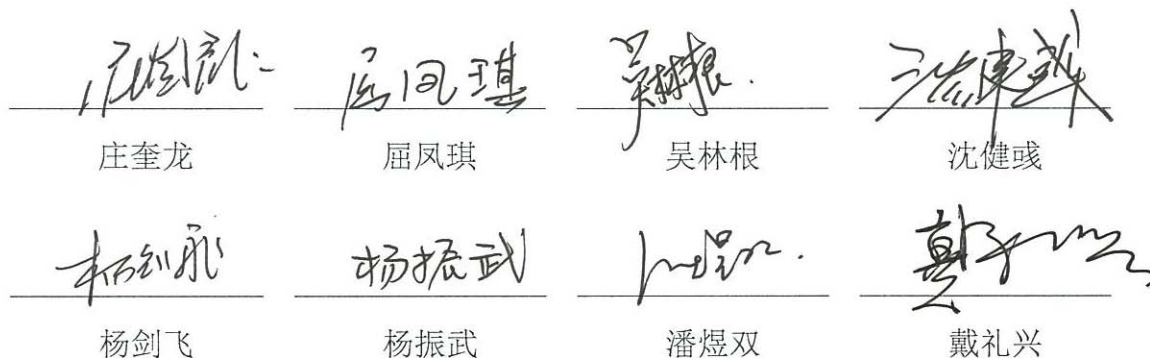 庄奎龙 屈凤琪 吴林根 沈健彧
庄奎龙 屈凤琪 吴林根 沈健彧
杨剑飞 杨振武 潘煜双 戴礼兴
杨剑飞 杨振武 潘煜双 戴礼兴